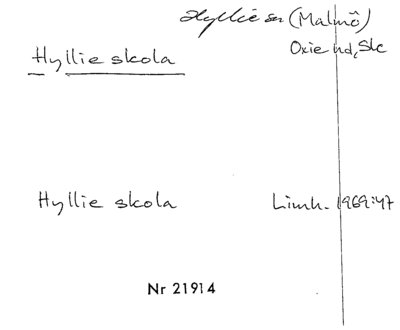 Hyllie sn (Malmö)
Oxie hd, Ske
Hyllie skola
Hyllie skola Limh. 1969:47
Nr 21914